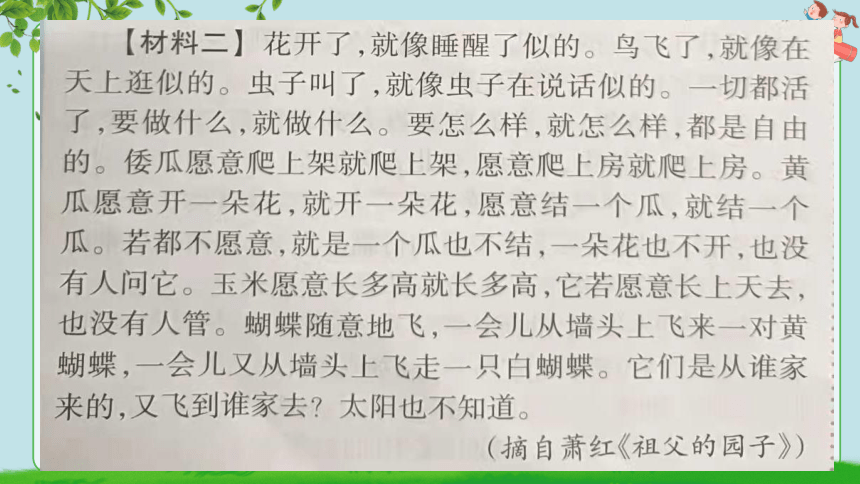 【材料二】花开了,就像睡醒了似的。鸟飞了,就像在
天上逛似的。虫子叫了,就像虫子在说话似的。一切都活
了,要做什么,就做什么。要怎么样,就怎么样,都是自由
的。倭瓜愿意爬上架就爬上架,愿意爬上房就爬上房。黄
瓜愿意开一朵花,就开一朵花,愿意结一个瓜,就结一个
瓜。若都不愿意,就是一个瓜也不结,一朵花也不开,也没
有人问它。玉米愿意长多高就长多高,它若愿意长上天去,
也没有人管。蝴蝶随意地飞,一会儿从墙头上飞来一对黄
蝴蝶,一会儿又从墙头上飞走一只白蝴蝶。它们是从谁家
来的,又飞到谁家去?太阳也不知道。
(摘自萧红《祖父的园子》)